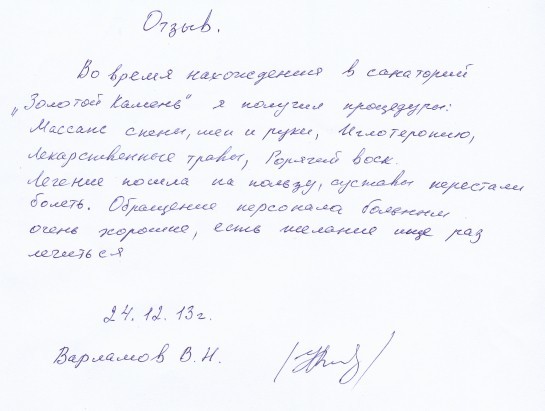 Отзыв.
Во время нахождения в санаторий
„Золотой Камень" я получил процедуры:
Массаж спены, шеи и руки, Иглотеропию,
Лекарственные травы, Горячий воск.
Легение пошла на пользу, суставы перестали
болеть. Обращение персонала больным
очень хорошие, есть желание ище раз
лечиться
24.12.13г.
Варламов В.Н.